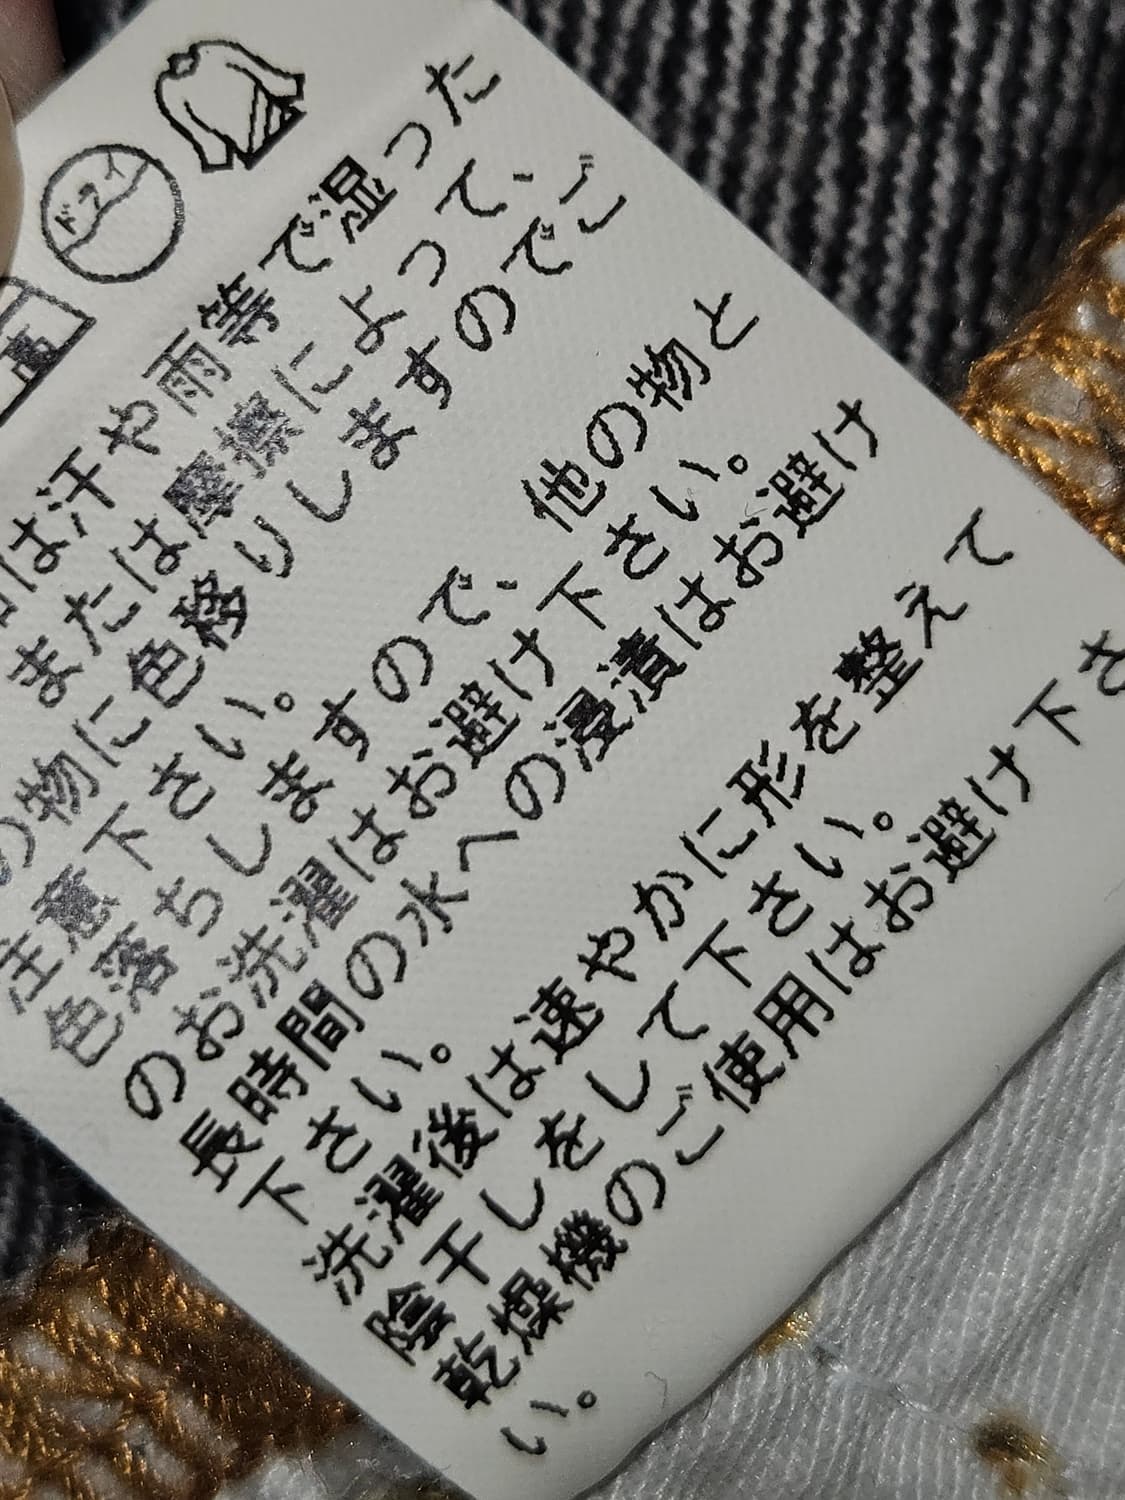 ドライ
高
は汗や雨等で湿った
または摩擦によって、
の物に色移りしますのでご
注意下さい。
色落ちしますので、他の物と
のお洗濯はお避け下さい。
長時間の水への浸漬はお避け
下さい。
洗濯後は速やかに形を整えて
陰干しをして下さい。
乾燥機のご使用はお避け下さ
い。